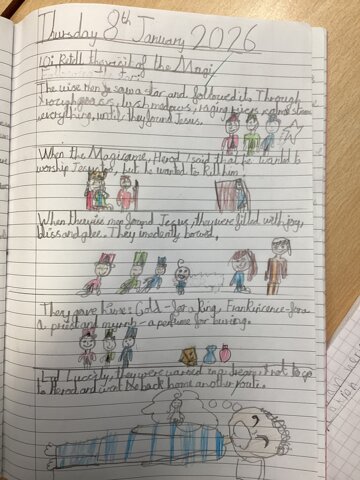 Thursday 8th January 2026
LO: Retell the visit of the Magi
The wise men saw a star and followed it. Through
rough grass, lush meadows, raging rivers and
everything, until they found Jesus.
When the Magi came, Herod said that he wanted to
worship Jesus too, but he wanted to kill him
When the wise men found Jesus, they were filled with joy,
bliss and glee. They bowed,
They gave him: Gold - for a King, Frankincence - for a
a priest and myrrh - a perfume for buring.
Luckily, they were warned in a dream not to go
to Herod and went back home another route.